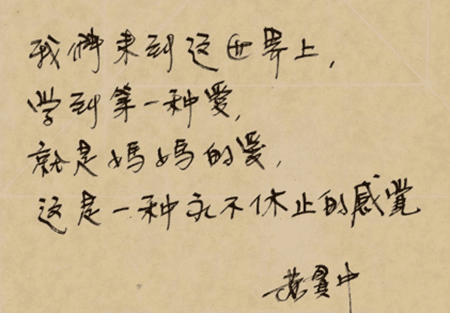 我們来到这世界上,
学到第一种愛,
就是媽媽的愛,
这是一种永不休止的感覺
黃貫中